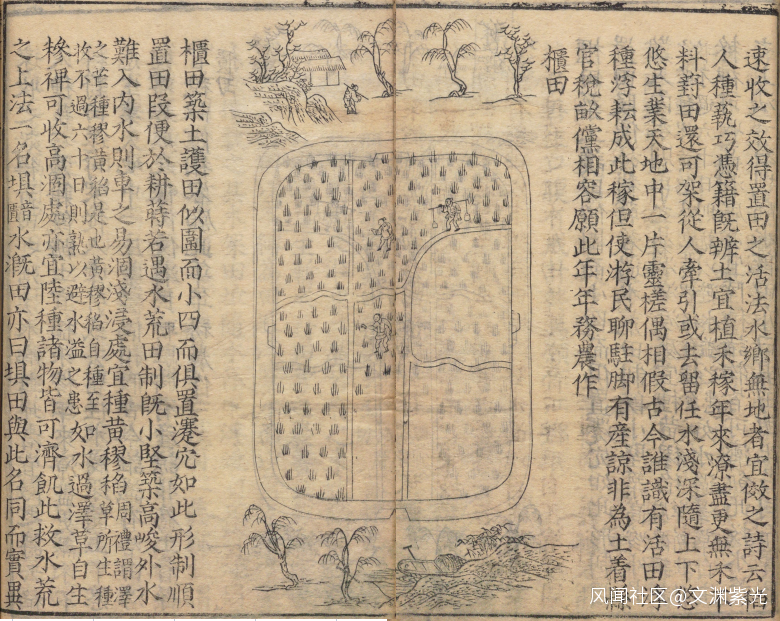 速收之效得置田之活法水鄉無地者宜倣之詩云
人種蓺巧憑籍既辨土宜植禾稼年來潦盡更無禾
料葑田還可架從人牽引或去留任水淺深隨上下
悠生業天地中一片靈槎偶相假古今誰識有活田
種浮耘成此稼但使游民聊駐脚有產諒非為土着
官税畝儻相容願此年年務農作
櫃田
櫃田築土護田似圍而小四而俱置瀽穴如此形制順
置田段便於耕蒔若遇水荒田制既小堅築高峻外水
難入內水則車之易涸淺浸處宜種黃穋稻周禮謂澤草所生種
之芒種穋黃稻是也黃穋稻自種至收不過六十日則熟以避水溢之患如水過澤草自生
穇稗可收高涸處亦宜陸種諸物皆可濟飢此救水荒
之上法一名埧水溉田亦曰埧田與此名同而實異
风闻社区@文渊紫光